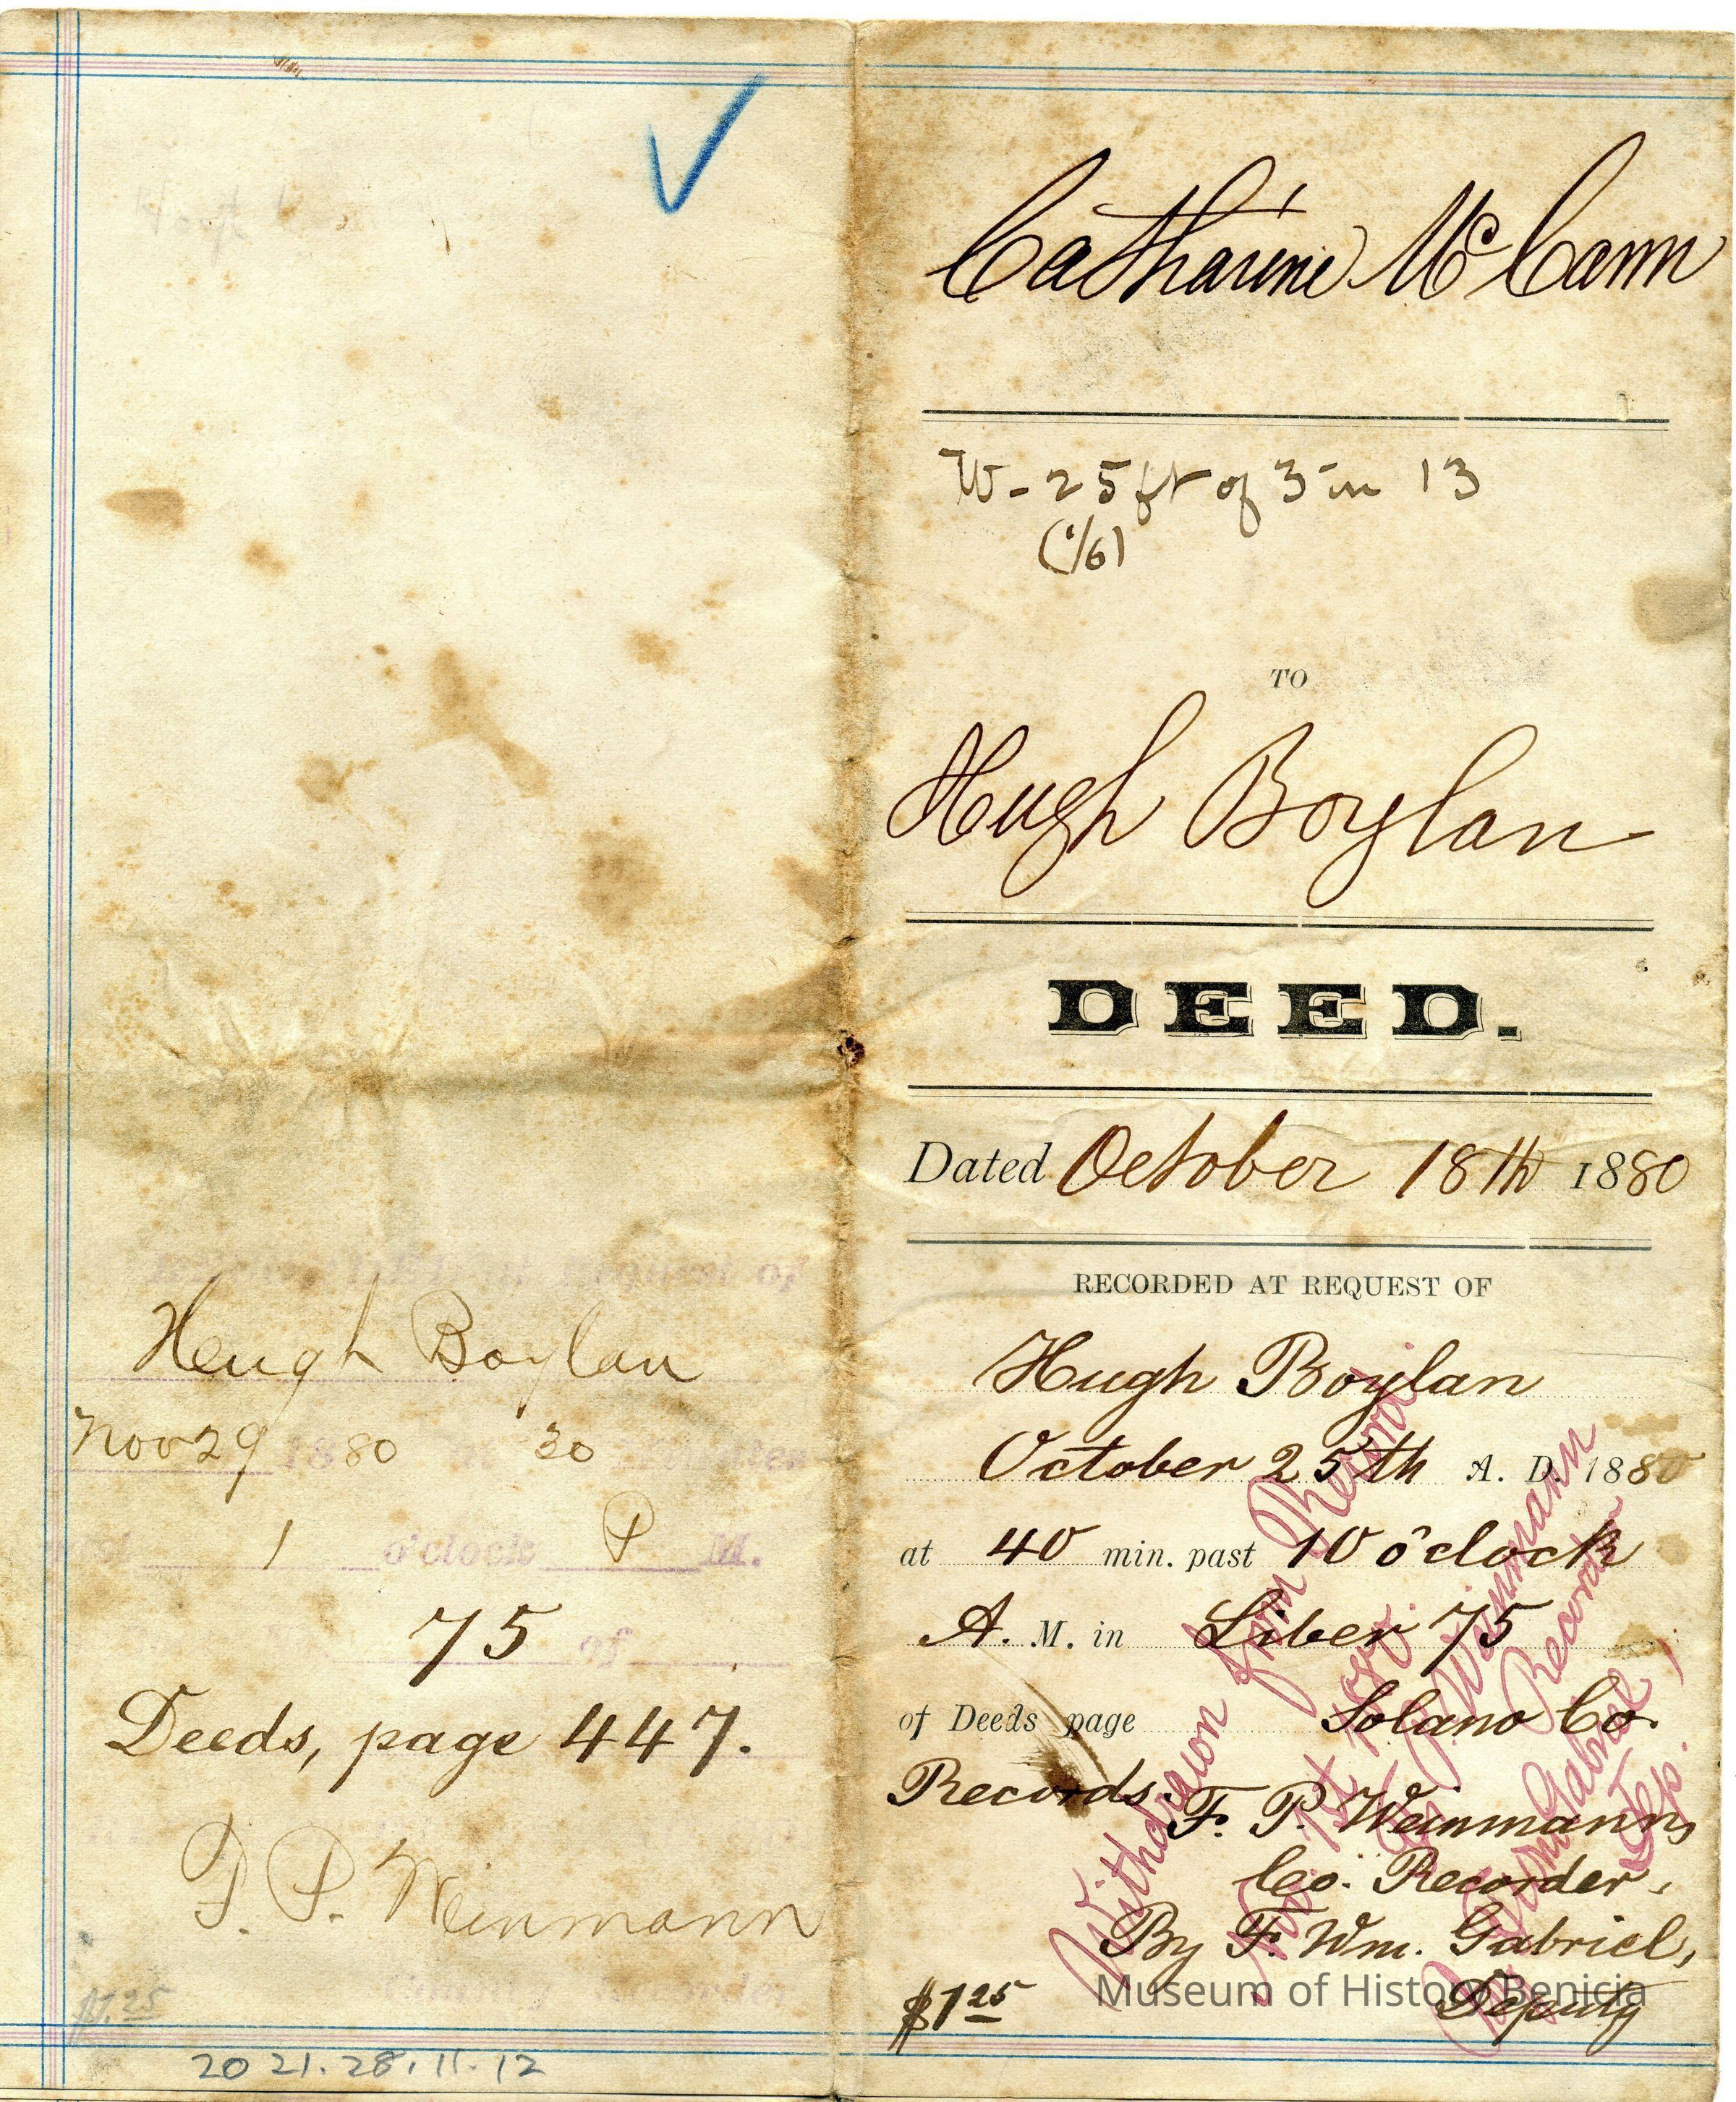 Hugh Boylan
Nov 29 1880 30
1 o'clock P M.
75 of
Deeds, page 447.
F. P. Weinmann
County Recorder
$1.25
20 21. 28. 11. 12
Catharine McCann
W- 25 ft of 3 in 13
(1/6)
TO
Hugh Boylan
DEED.
Dated October 18th 1880
RECORDED AT REQUEST OF
Hugh Boylan
October 25th A. D. 1880
at 40 min. past 10 o'clock
A. M. in Liber 75
of Deeds page Solano Co.
Records.
F. P. Weinmann,
Co. Recorder,
By F. Wm. Gabriel,
Deputy
$1 25
Withdrawn from Record
Nov. 1st 1880.
F. P. Weinmann
Recorder
By F. Wm. Gabriel,
Dep.
Museum of History Benicia